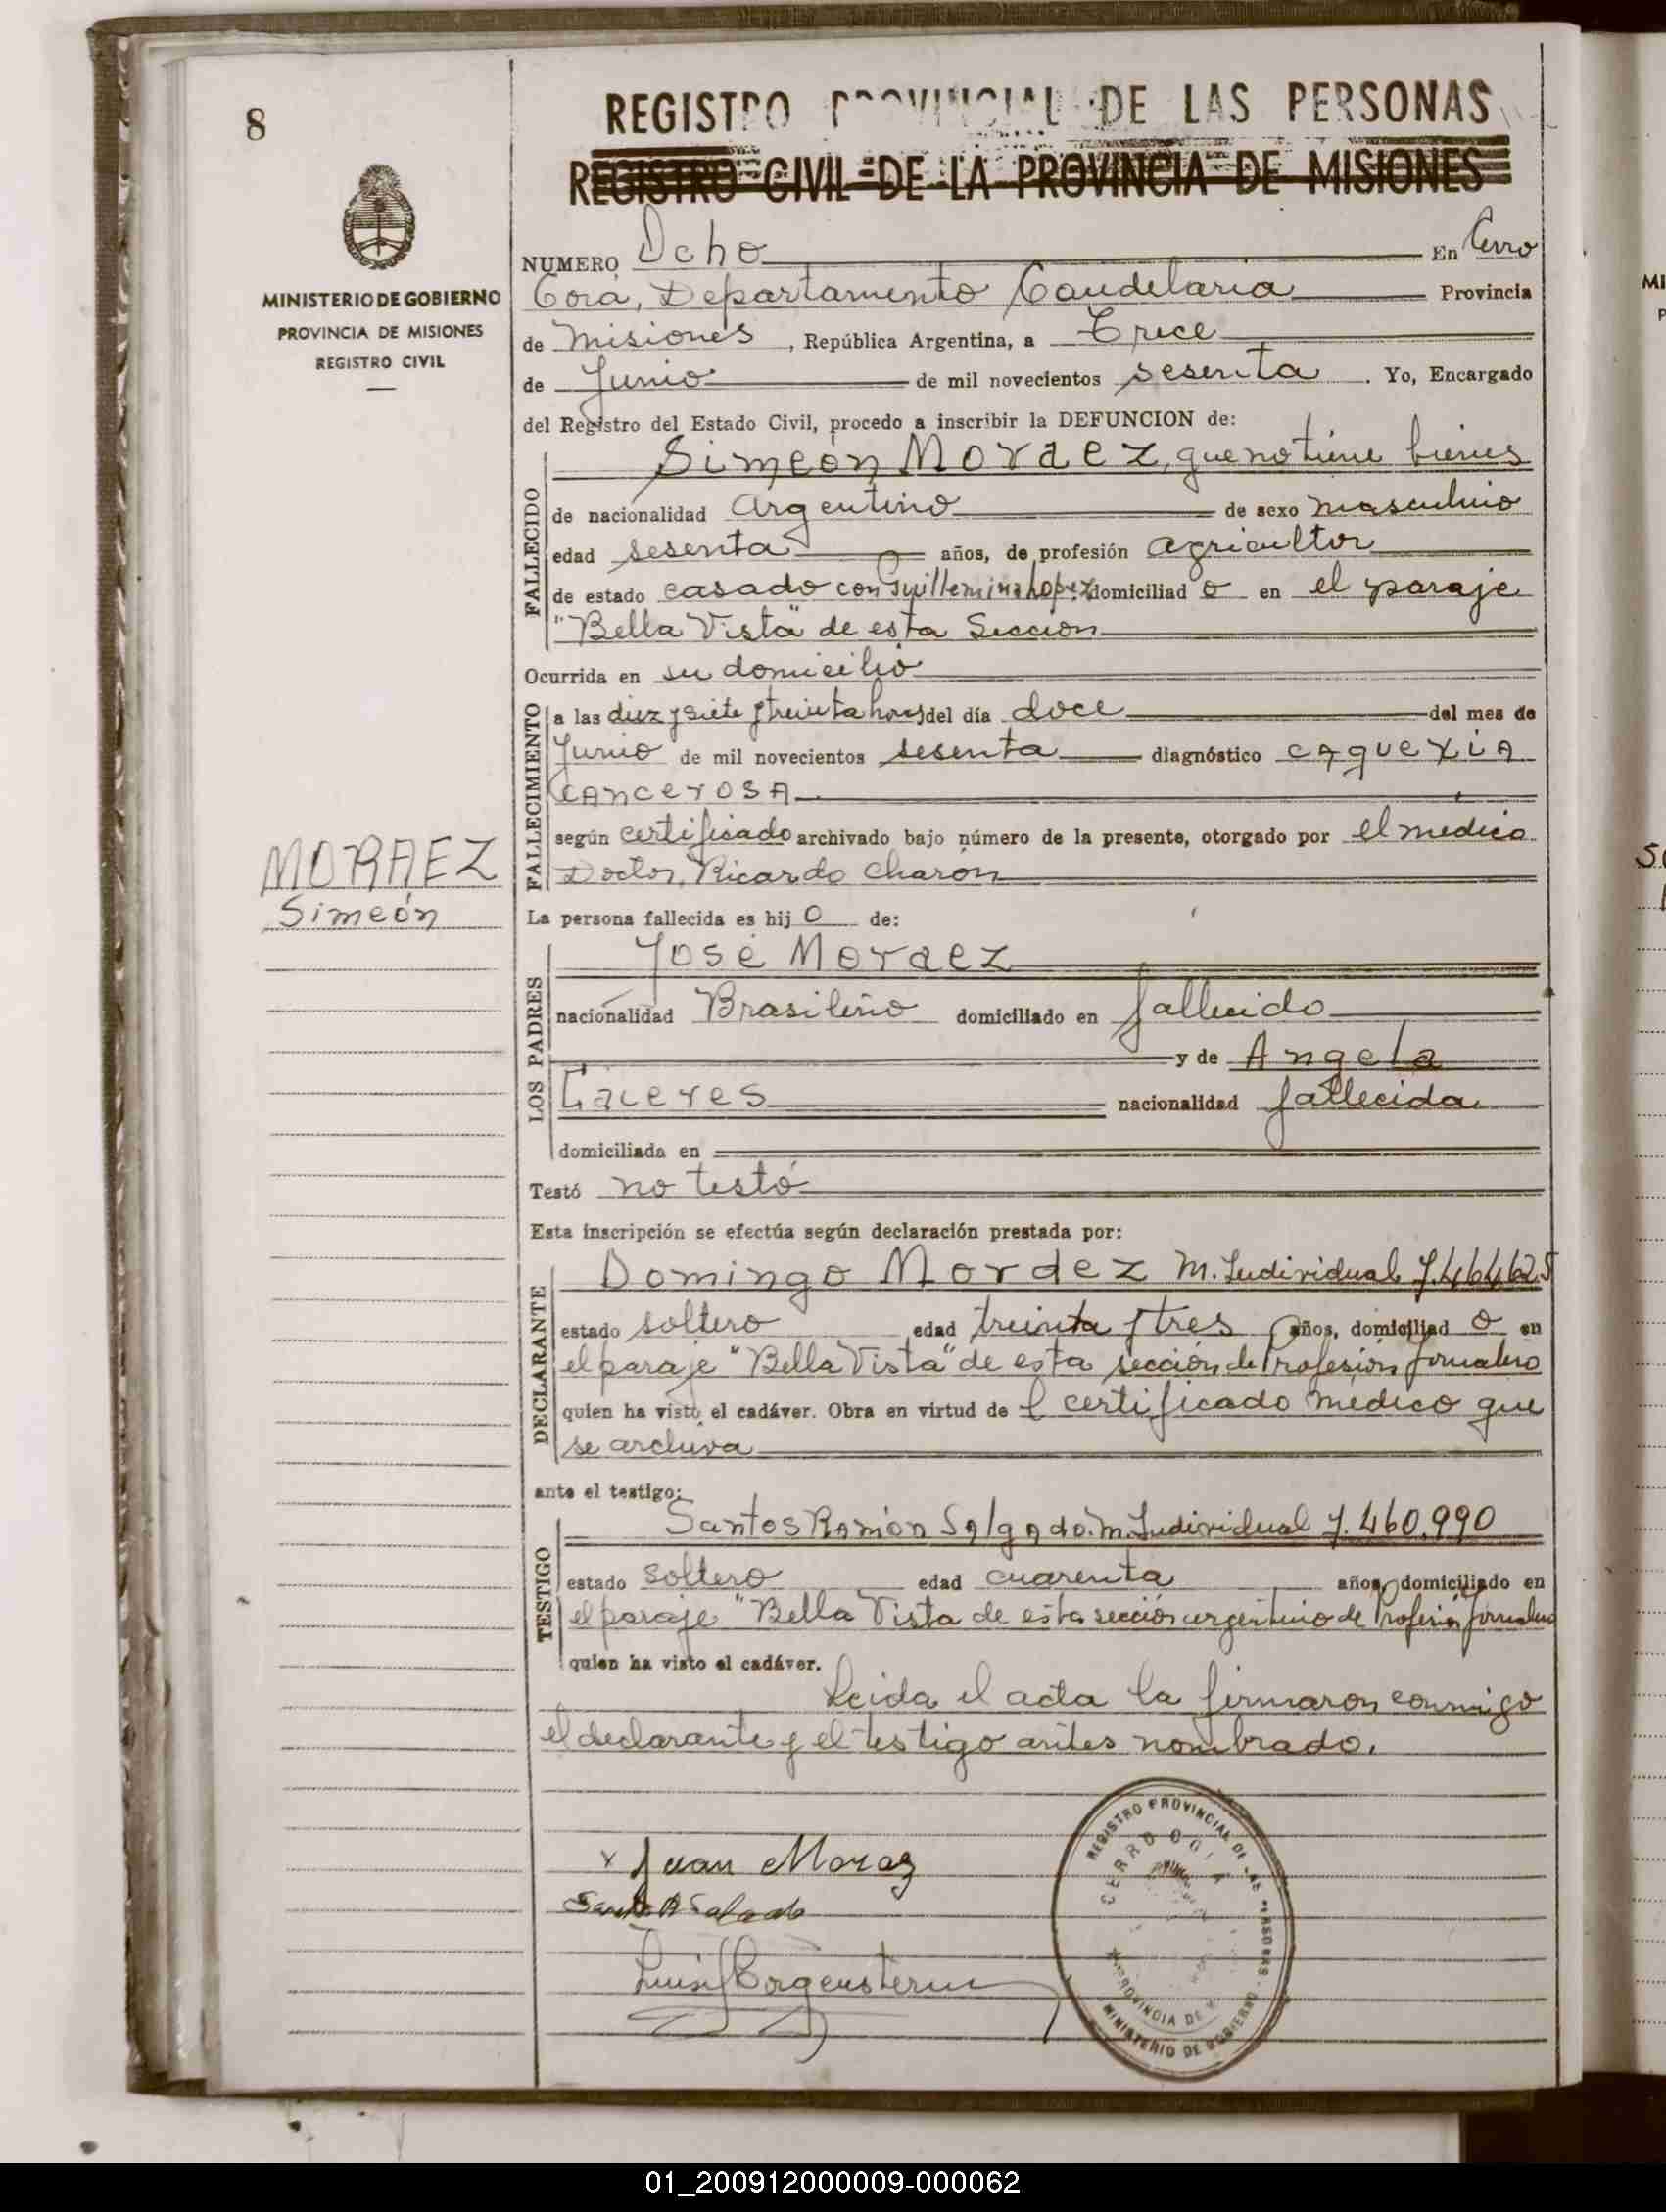 8
REGISTRO PROVINCIAL DE LAS PERSONAS
REGISTRO CIVIL DE LA PROVINCIA DE MISIONES
MINISTERIO DE GOBIERNO
PROVINCIA DE MISIONES
REGISTRO CIVIL
NUMERO Ocho En Cerro
Corá, Departamento Candelaria Provincia
de Misiones, República Argentina, a Trece
de Junio de mil novecientos sesenta. Yo, Encargado
del Registro del Estado Civil, procedo a inscribir la DEFUNCION de:
FALLECIDO
Simeón Moraez, que no tiene bienes
de nacionalidad Argentino de sexo masculino
edad sesenta años, de profesión agricultor
de estado casado con Guillermina Lopez domiciliado en el paraje
"Bella Vista" de esta Sección
Ocurrida en su domicilio
FALLECIMIENTO
a las diez y siete y treinta horas del día doce del mes de
Junio de mil novecientos sesenta diagnóstico caquexia
cancerosa
según certificado archivado bajo número de la presente, otorgado por el medico
Doctor, Ricardo Charón
MORAEZ
Simeón
La persona fallecida es hijo de:
LOS PADRES
José Moraez
nacionalidad Brasileño domiciliado en fallecido
y de Angela
Caceres nacionalidad fallecida
domiciliada en
Testó no testó
Esta inscripción se efectúa según declaración prestada por:
DECLARANTE
Domingo Moraez M. Individual 7.464.625
estado soltero edad treinta y tres años, domiciliado en
el paraje "Bella Vista" de esta sección de Profesión Jornalero
quien ha visto el cadáver. Obra en virtud del certificado médico que
se archiva
ante el testigo:
TESTIGO
Santos Ramón Salgado. M. Individual 7.460.990
estado soltero edad cuarenta años, domiciliado en
el paraje "Bella Vista de esta sección argentino de Profesión Jornalero
quien ha visto el cadáver.
Leida el acta la firmaron conmigo
el declarante y el testigo antes nombrado.
x Juan Moraz
Salgado
Luis Morgenstern
REGISTRO PROVINCIAL DE LAS PERSONAS
CERRO CORA
PROVINCIA DE
MINISTERIO DE GOBIERNO
01_200912000009-000062